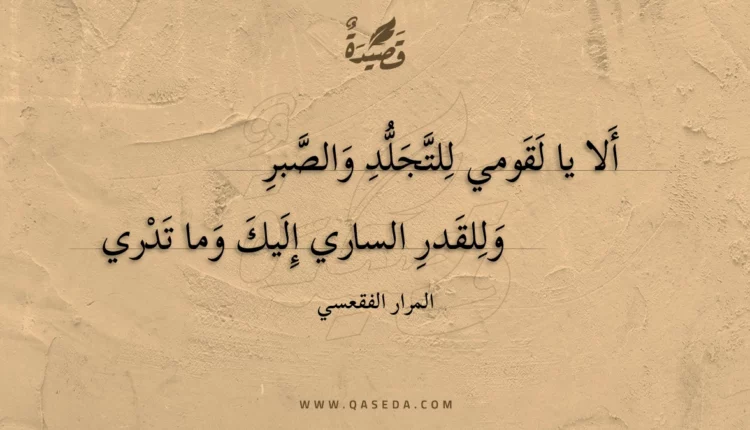 قَصِيدَةٌ
أَلا يا لَقَومي لِلتَّجَلُّدِ وَالصَّبرِ
وَلِلقَدرِ الساري إِلَيكَ وَما تَدْري
المرار الفقعسي
WWW.QASEDA.COM